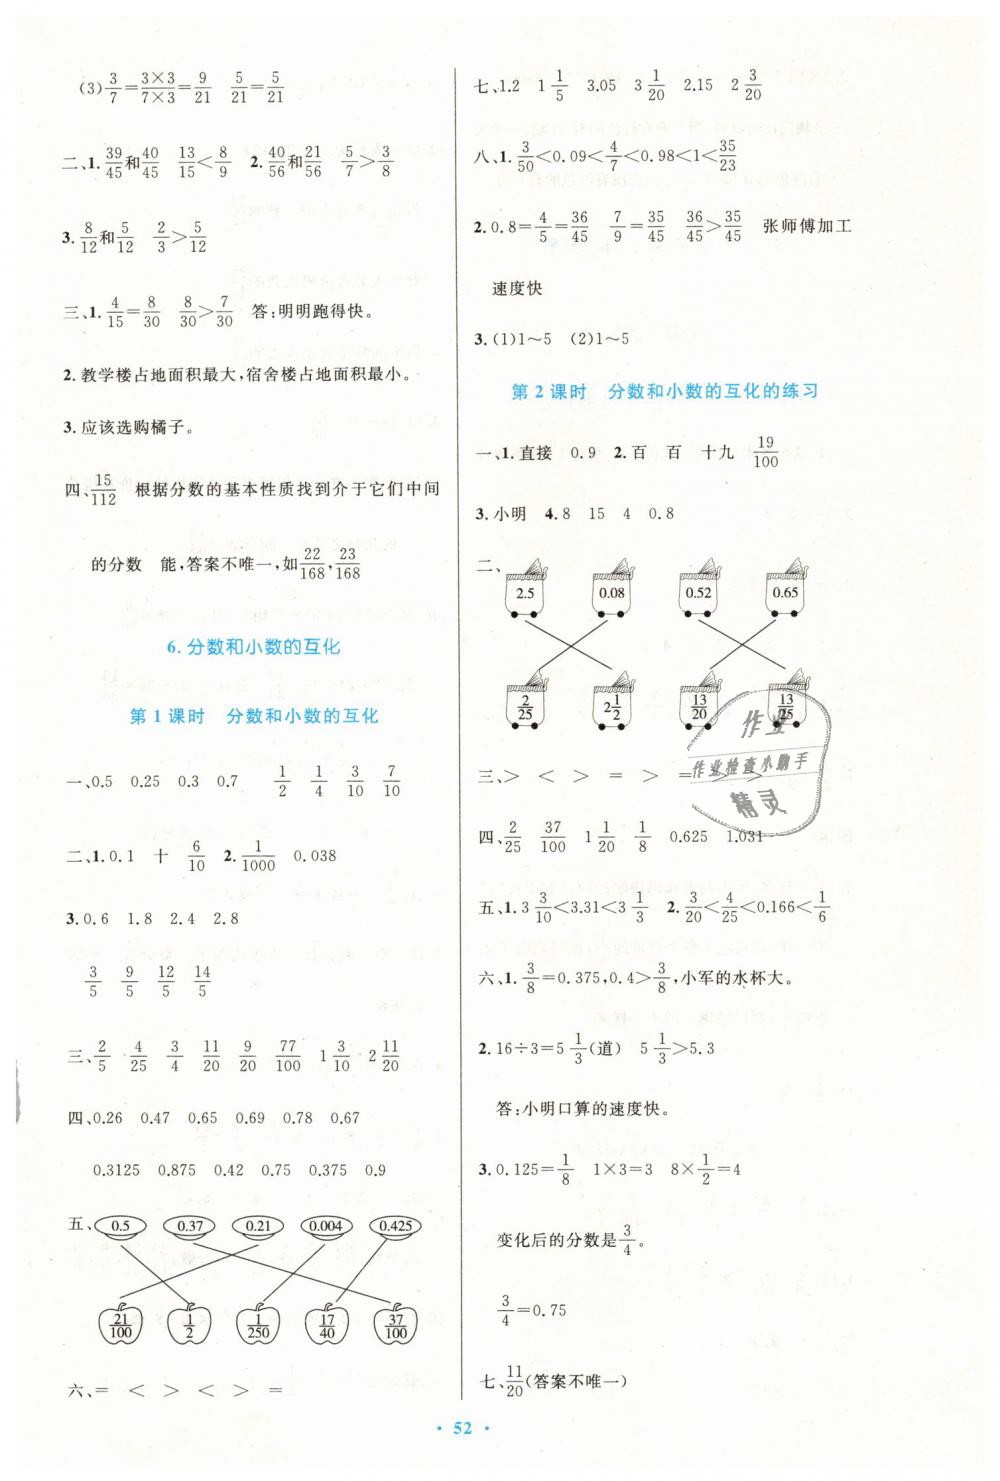 (3) 3/7=3×3/7×3=9/21 5/21=5/21
二、1. 39/45和40/45 13/15<8/9 2. 40/56和21/56 5/7>3/8
3. 8/12和5/12 2/3>5/12
三、1. 4/15=8/30 8/30>7/30 答:明明跑得快。
2. 教学楼占地面积最大,宿舍楼占地面积最小。
3. 应该选购橘子。
四、15/112 根据分数的基本性质找到介于它们中间
的分数 能,答案不唯一,如22/168,23/168
6. 分数和小数的互化
第1课时 分数和小数的互化
一、0.5 0.25 0.3 0.7 1/2 1/4 3/10 7/10
二、1. 0.1 十 6/10 2. 1/1000 0.038
3. 0.6 1.8 2.4 2.8
3/5 9/5 12/5 14/5
三、2/5 4/25 3/4 11/20 9/20 77/100 1 3/10 2 11/20
四、0.26 0.47 0.65 0.69 0.78 0.67
0.3125 0.875 0.42 0.75 0.375 0.9
五、0.5 0.37 0.21 0.004 0.425
21/100 1/2 1/250 17/40 37/100
六、= < > < > =
七、1.2 1 1/5 3.05 3 1/20 2.15 2 3/20
八、1. 3/50<0.09<4/7<0.98<1<35/23
2. 0.8=4/5=36/45 7/9=35/45 36/45>35/45 张师傅加工
速度快
3. (1)1~5 (2)1~5
第2课时 分数和小数的互化的练习
一、1. 直接 0.9 2. 百 百 十九 19/100
3. 小明 4. 8 15 4 0.8
二、2.5 0.08 0.52 0.65
2/25 2 1/2 13/20 13/25
三、> < > = > = > >
四、2/25 37/100 1 1/20 1/8 0.625 1.031
五、1. 3 3/10<3.31<3 1/3 2. 3/20<4/25<0.166<1/6
六、1. 3/8=0.375,0.4>3/8,小军的水杯大。
2. 16÷3=5 1/3(道) 5 1/3>5.3
答:小明口算的速度快。
3. 0.125=1/8 1×3=3 8×1/2=4
变化后的分数是3/4。
3/4=0.75
七、11/20(答案不唯一)
作业
作业检查小助手
精灵
· 52 ·